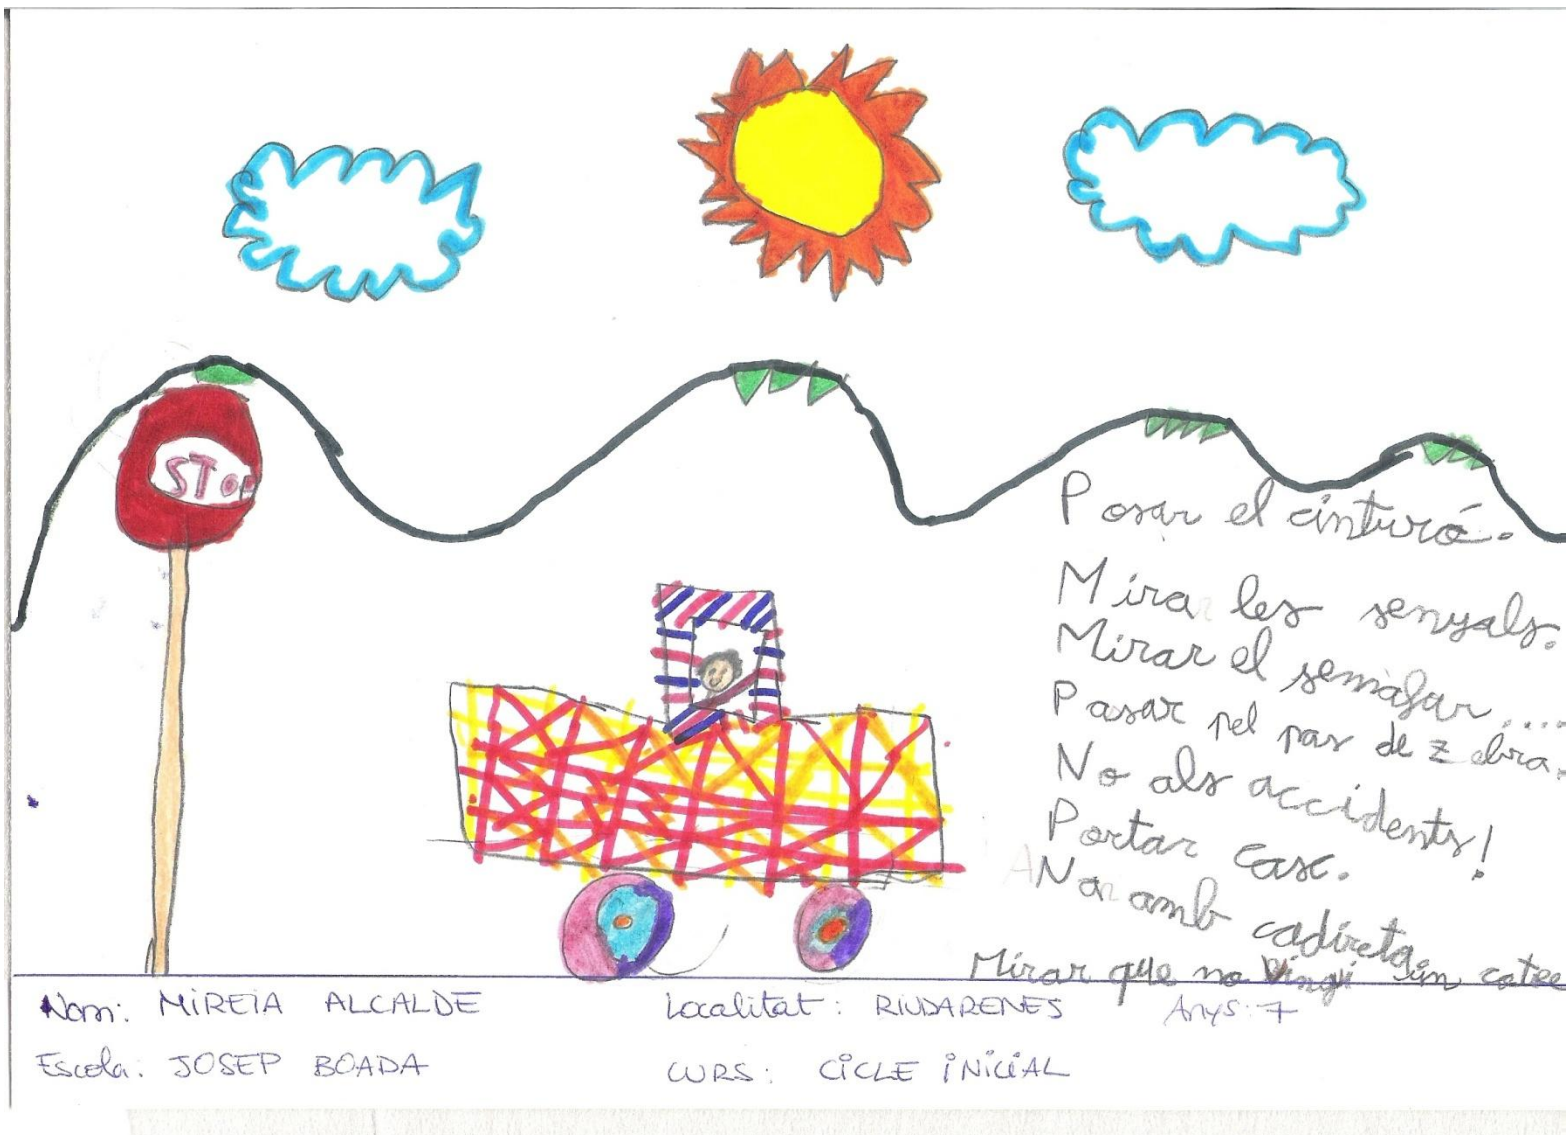 STOP
Posar el cinturó.
Mira les senyals.
Mirar el semafur....
Pasar pel pas de zebra.
No als accidents!
Portar casc.
Anar amb cadireta.
Mirar que no vingi un cotxe
Nom: MIREIA ALCALDE Localitat: RIUDARENES Anys: 7
Escola: JOSEP BOADA CURS: CICLE INICIAL